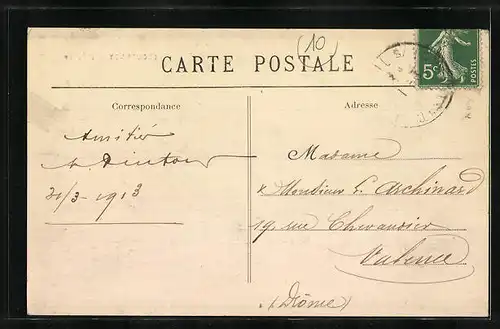 (10)
CARTE POSTALE
5c
POSTES
Correspondance
Adresse
Amitiés
31/3 - 1913
Madame
& Monsieur L. Archinard
19, rue Chevandier
Valence
(Drôme)